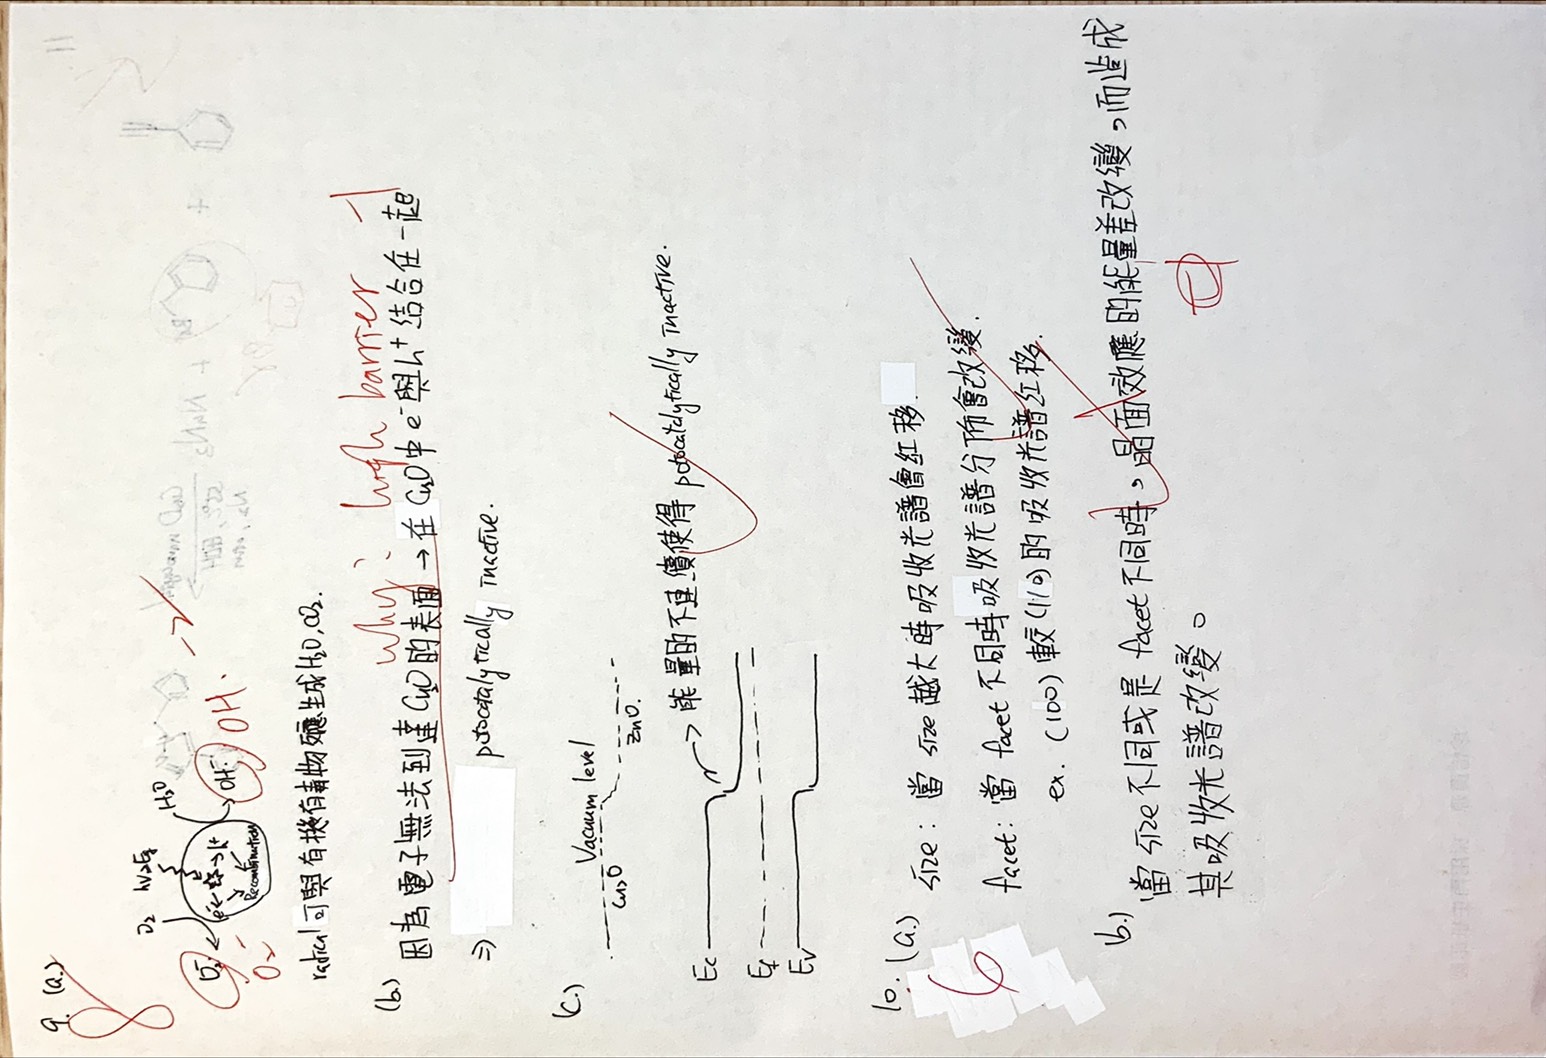 9. (a.)
8
O₂ hν≥Eg H₂O
-2
O₂⁻· e⁻ h⁺ OH⁻· OH·
Recombination
O₂⁻
radical 可與有機有毒物反應生成H₂O, CO₂.
why: high barrier -1
(b.)
因為電子無法到達Cu₂O的表面→在Cu₂O中e⁻與h⁺結合在一起
⇒ potocatalytically inactive.
(c.)
Vacuum level
Cu₂O
ZnO.
→ 能量的不連續使得 potocatalytically inactive.
Ec
Ef
Ev
10. (a.)
size: 當 size 越大時吸收光譜會紅移.
6
facet: 當 facet 不同時吸收光譜分佈會改變.
ex. (100) 較(110)的吸收光譜紅移.
(b.)
當 size 不同或是 facet 不同時，晶面效應的能量差改變，而造成
其吸收光譜改變。